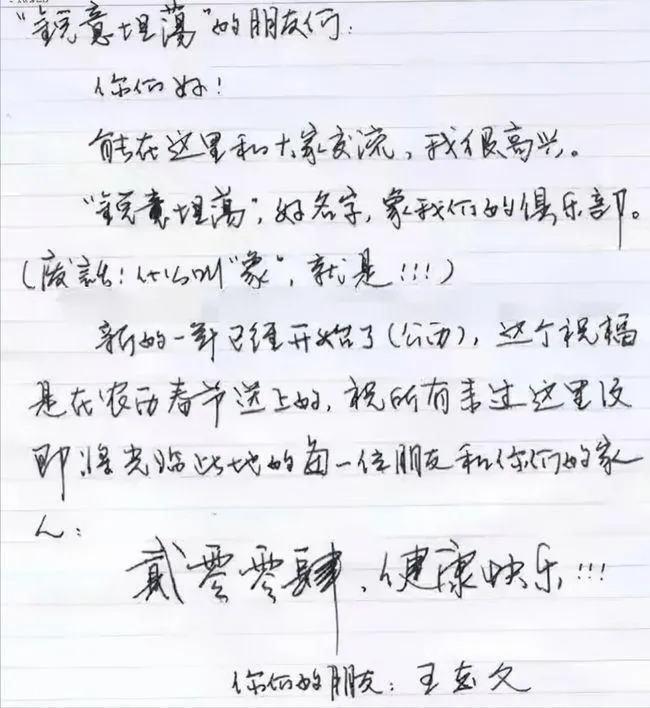 “銳意坦蕩”的朋友们:
你们好!
能在这里和大家交流,我很高兴。
“銳意坦蕩”,好名字,象我们的俱乐部。
(废話!什么叫“象”,就是!!!)
新的一年已经开始了(公历),这个祝福
是在农历春节送上的,祝所有来过这里及
即将光临此地的每一位朋友和你们的家
人:
貳零零肆,健康快乐!!!
你们的朋友:王志文